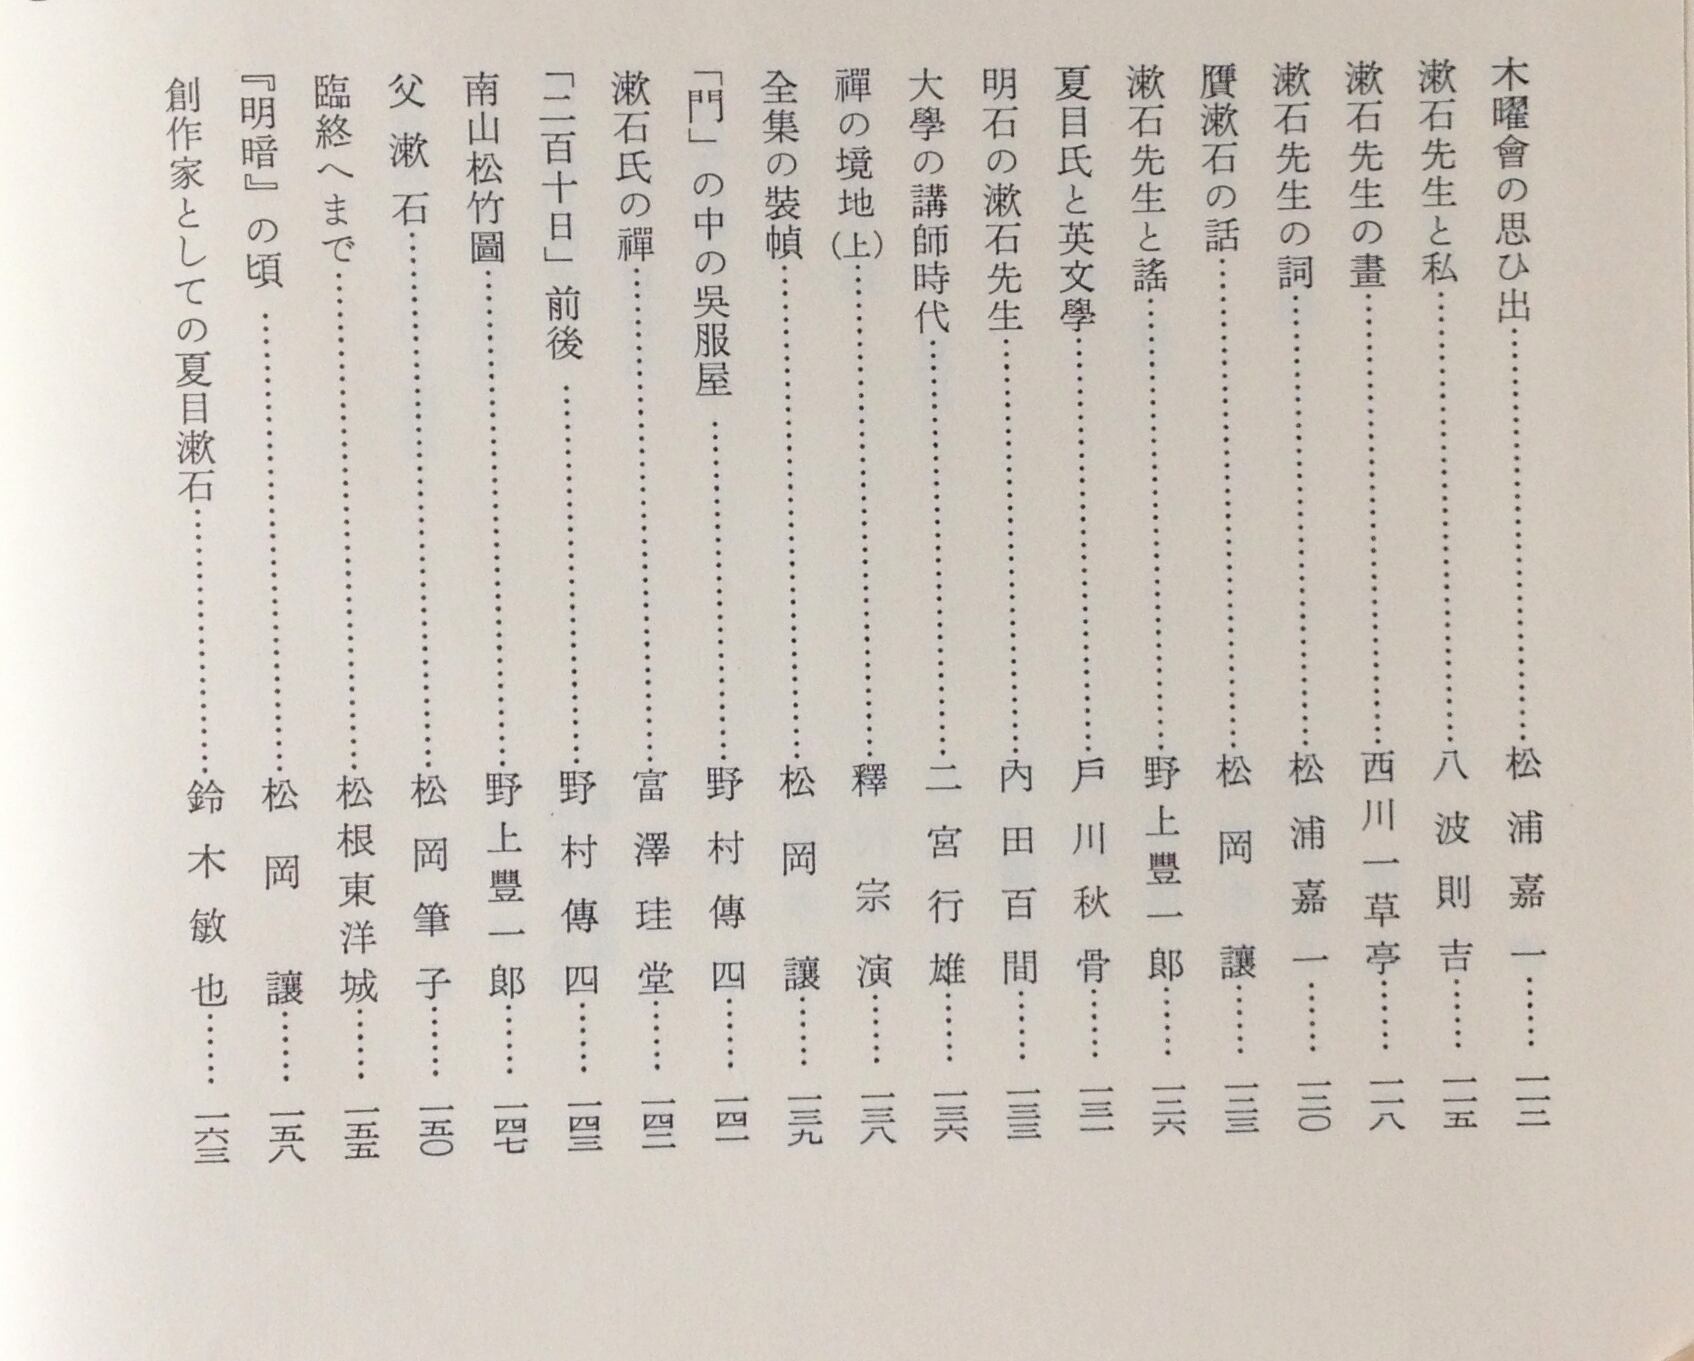 木曜會の思ひ出……松浦嘉一……一一二
漱石先生と私……八波則吉……一一五
漱石先生の畫……西川一草亭……一一八
漱石先生の詞……松浦嘉一……一二〇
贋漱石の話……松岡讓……一二三
漱石先生と謠……野上豐一郎……一二六
夏目氏と英文學……戶川秋骨……一三一
明石の漱石先生……内田百間……一三三
大學の講師時代……二宮行雄……一三六
禪の境地(上)……釋宗演……一三八
全集の裝幀……松岡讓……一三九
「門」の中の吳服屋……野村傳四……一四一
漱石氏の禪……富澤珪堂……一四二
「二百十日」前後……野村傳四……一四三
南山松竹圖……野上豐一郎……一四七
父漱石……松岡筆子……一五〇
臨終へまで……松根東洋城……一五五
『明暗』の頃……松岡讓……一五八
創作家としての夏目漱石……鈴木敏也……一六三